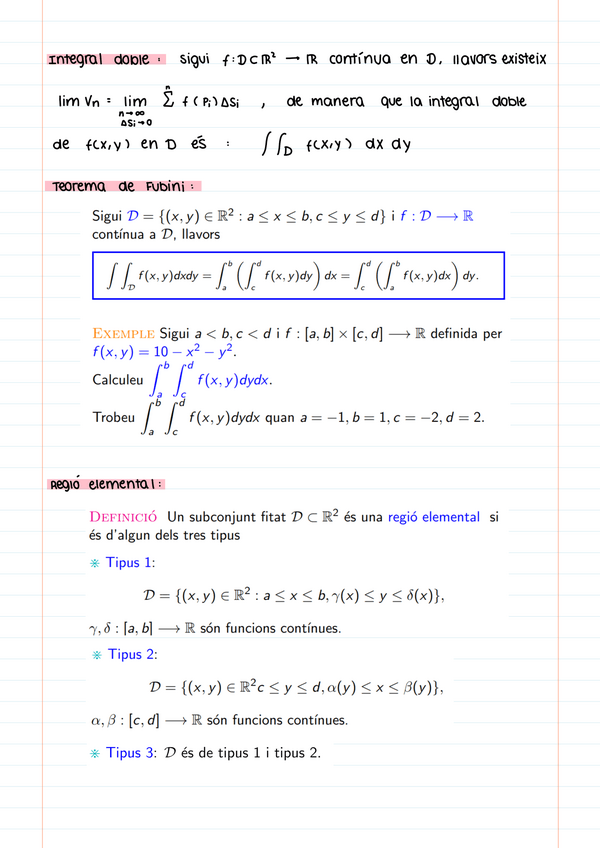 Integral doble: sigui f:D⊂ℝ² → ℝ contínua en D, llavors existeix
lim Vn = lim n→∞ ΔSi→0 Σⁿ f(Pi)ΔSi , de manera que la integral doble
de f(x,y) en D és : ∫∫_D f(x,y) dx dy
Teorema de Fubini:
Sigui 𝒟 = {(x, y) ∈ ℝ² : a ≤ x ≤ b, c ≤ y ≤ d} i f : 𝒟 ⟶ ℝ
contínua a 𝒟, llavors
∫∫_𝒟 f(x, y)dxdy = ∫_a^b (∫_c^d f(x, y)dy) dx = ∫_c^d (∫_a^b f(x, y)dx) dy.
EXEMPLE Sigui a < b, c < d i f : [a, b] × [c, d] ⟶ ℝ definida per
f(x, y) = 10 − x² − y².
Calculeu ∫_a^b ∫_c^d f(x, y)dydx.
Trobeu ∫_a^b ∫_c^d f(x, y)dydx quan a = −1, b = 1, c = −2, d = 2.
Regió elemental:
DEFINICIÓ Un subconjunt fitat 𝒟 ⊂ ℝ² és una regió elemental si
és d'algun dels tres tipus
⋇ Tipus 1:
𝒟 = {(x, y) ∈ ℝ² : a ≤ x ≤ b, γ(x) ≤ y ≤ δ(x)},
γ, δ : [a, b] ⟶ ℝ són funcions contínues.
⋇ Tipus 2:
𝒟 = {(x, y) ∈ ℝ²c ≤ y ≤ d, α(y) ≤ x ≤ β(y)},
α, β : [c, d] ⟶ ℝ són funcions contínues.
⋇ Tipus 3: 𝒟 és de tipus 1 i tipus 2.